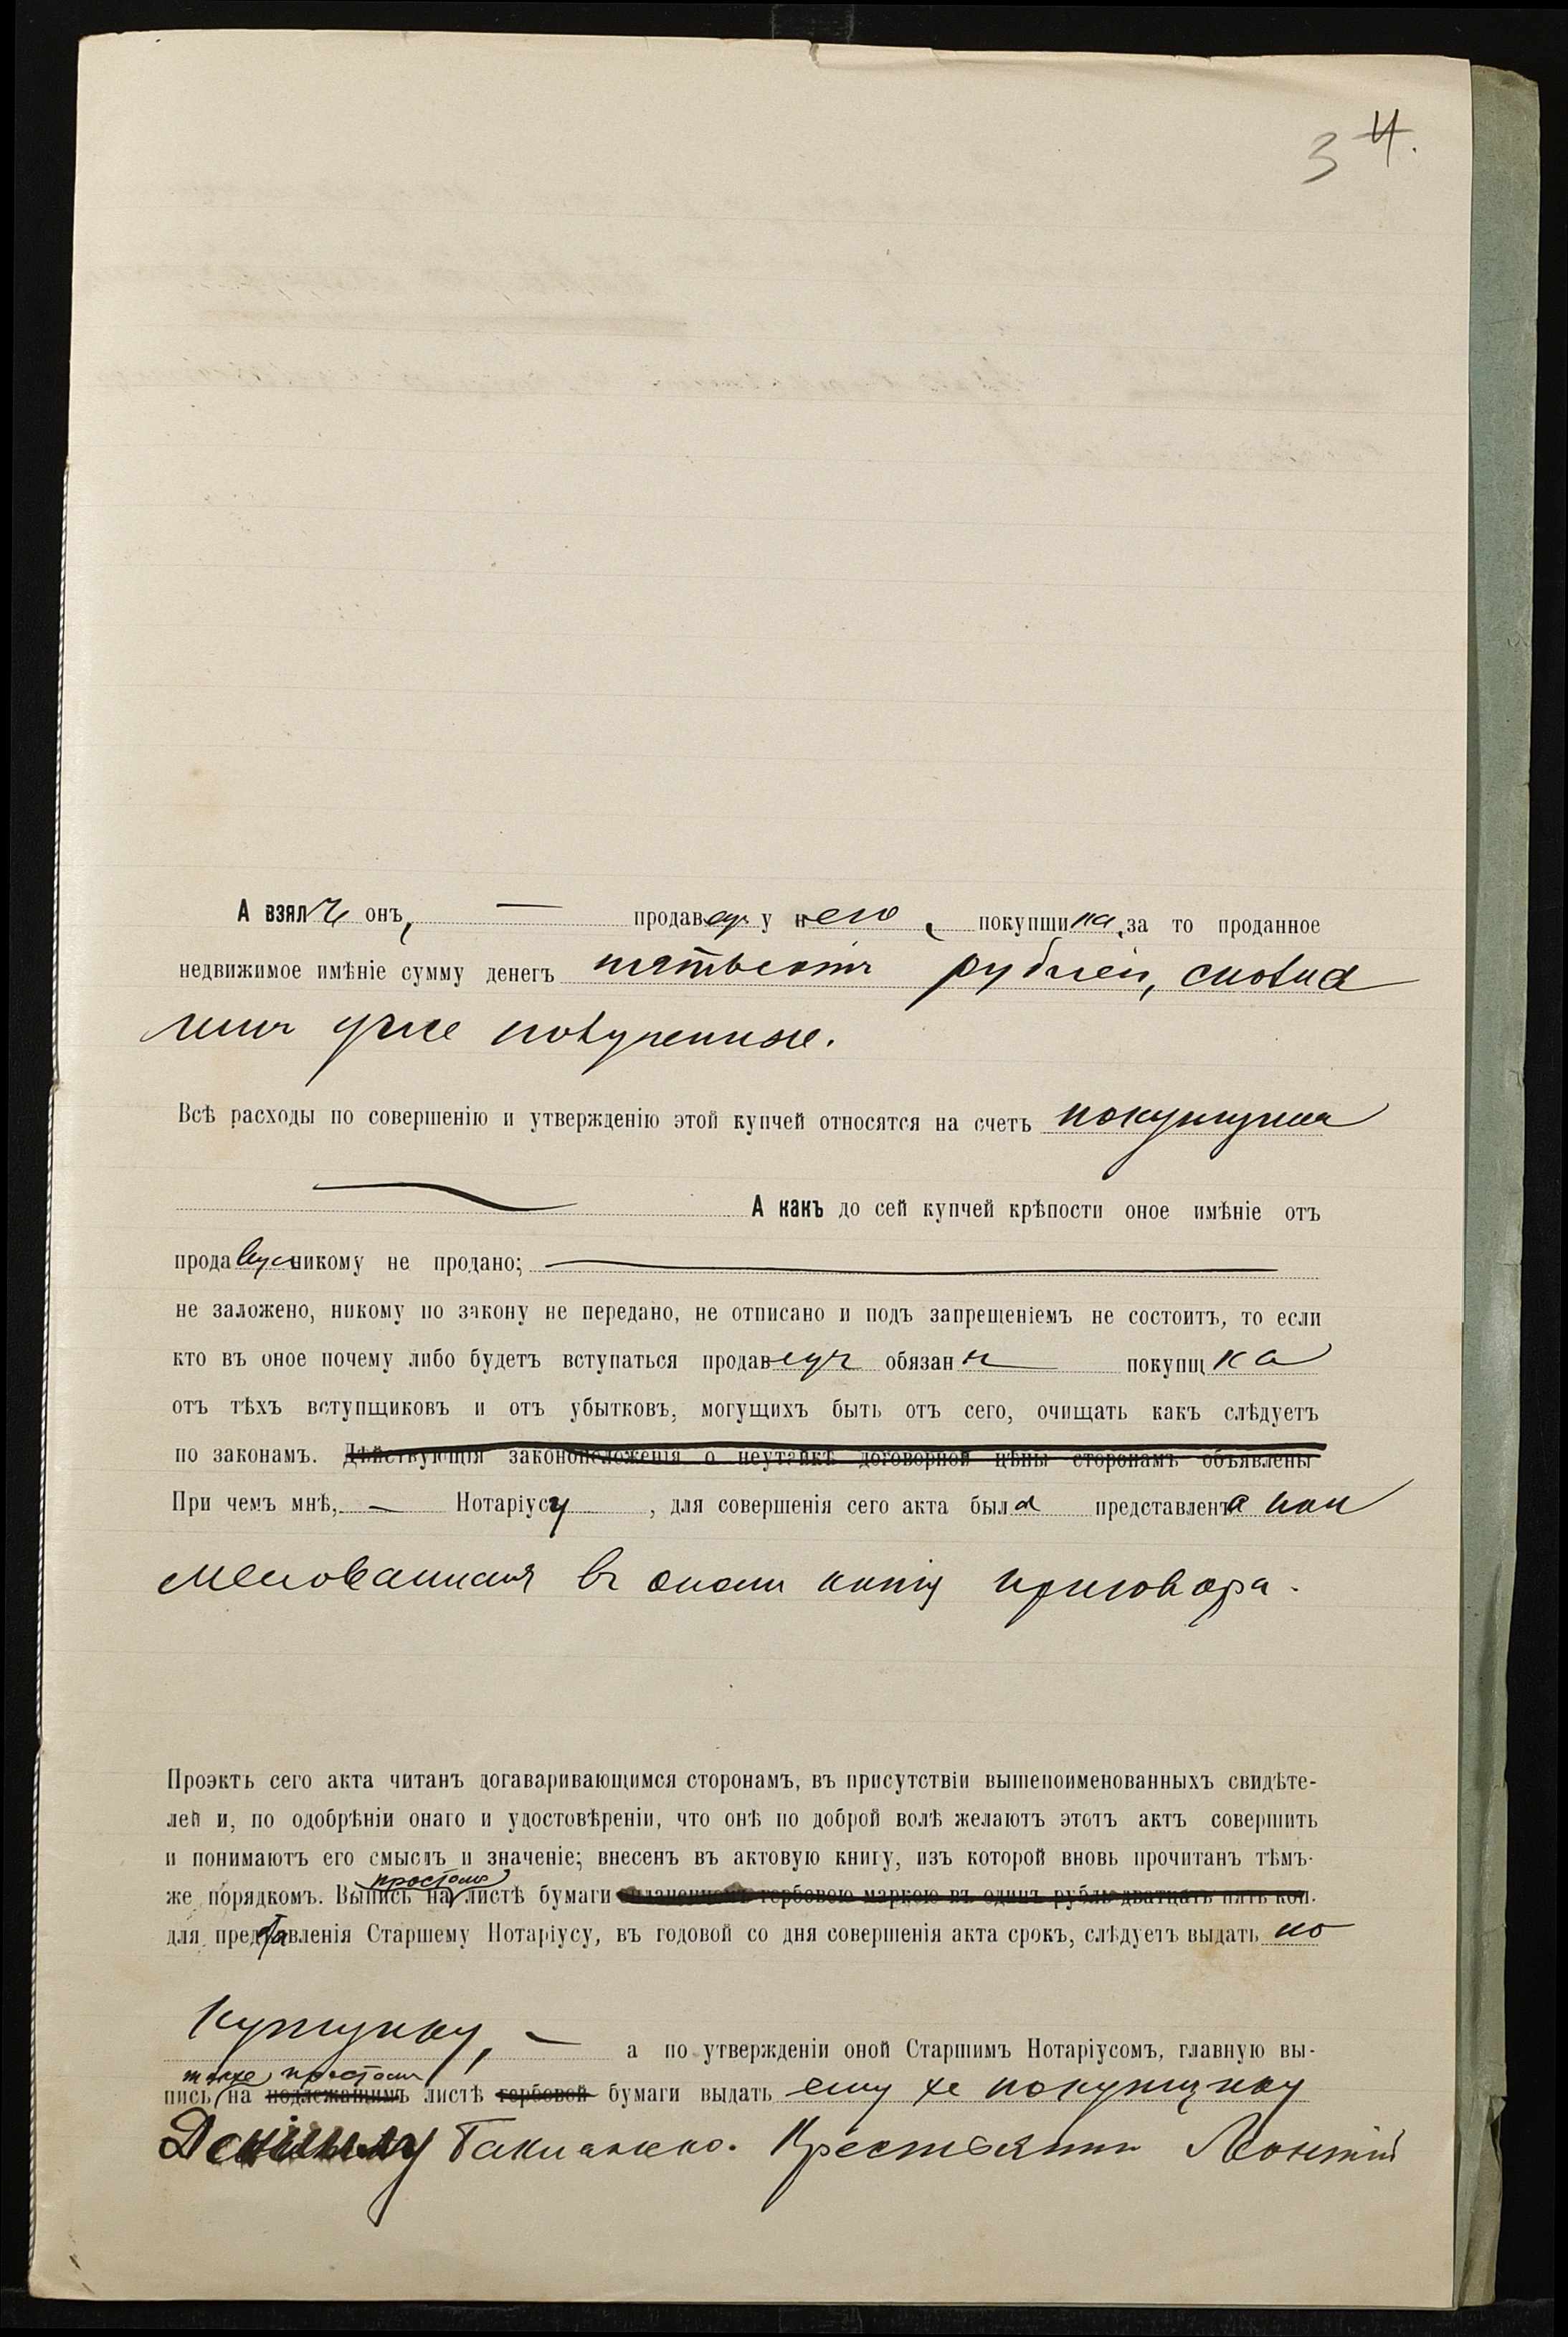 3 4.
А взялъ онъ, — продавецъ у него, покупщика, за то проданное
недвижимое имѣніе сумму денегъ пятьсотъ рублей, сполна
имъ уже полученные.
Всѣ расходы по совершенію и утвержденію этой купчей относятся на счетъ покупщика
А какъ до сей купчей крѣпости оное имѣніе отъ
продавца никому не продано;
не заложено, никому по закону не передано, не отписано и подъ запрещеніемъ не состоитъ, то если
кто въ оное почему либо будетъ вступаться продавецъ обязанъ покупщка
отъ тѣхъ вступщиковъ и отъ убытковъ, могущихъ быть отъ сего, очищать какъ слѣдуетъ
по законамъ. Дѣйствующія законоположенія о неутайкѣ договорной цѣны сторонамъ объявлены
При чемъ мнѣ, — Нотаріусу, для совершенія сего акта была представлена пои
менованная въ ономъ копія приговора.
Проэктъ сего акта читанъ договаривающимся сторонамъ, въ присутствіи вышепоименованныхъ свидѣте-
лей и, по одобрѣніи онаго и удостовѣреніи, что онѣ по доброй волѣ желаютъ этотъ актъ совершить
и понимаютъ его смыслъ и значеніе; внесенъ въ актовую книгу, изъ которой вновь прочитанъ тѣмъ-
же порядкомъ. Выпись на простомъ листѣ бумаги оплаченномъ гербовою маркою въ одинъ рубль двадцать пять коп.
для представленія Старшему Нотаріусу, въ годовой со дня совершенія акта срокъ, слѣдуетъ выдать по
купщику, — а по утвержденіи оной Старшимъ Нотаріусомъ, главную вы-
пись также на простомъ подлежащимъ листѣ гербовой бумаги выдать ему же покупщику
Крестьянинъ Леонтій